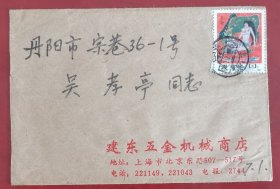 丹阳市宗巷36-1号
吴孝亭同志
建东五金机械商店
地址:上海市北京东路507—517号
电话:221149、221043 电报:2744